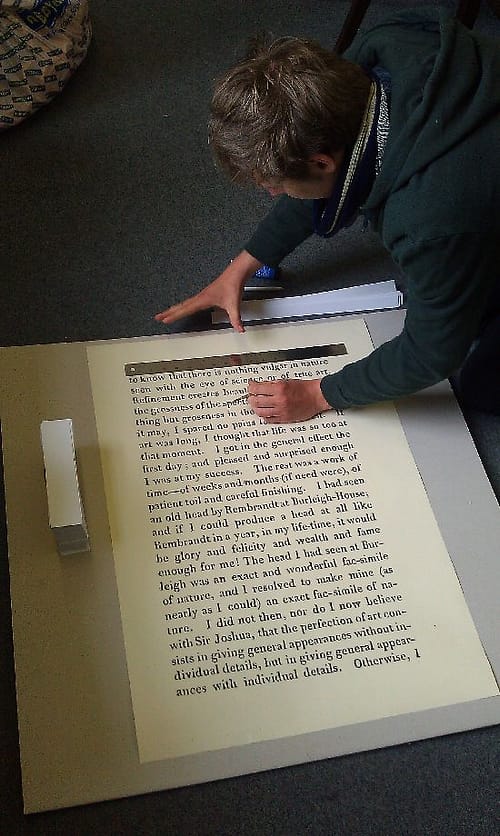 to know that there is nothing vulgar in nature
seen with the eye of science or of true art.
Refinement creates beauty
the grossness of the
thing but grossness in the
it may, I spared no pains
art was long, I thought that life was so too at
that moment. I got in the general effect the
first day; and pleased and surprised enough
I was at my success. The rest was a work of
time—of weeks and months (if need were), of
patient toil and careful finishing. I had seen
an old head by Rembrandt at Burleigh-House;
and if I could produce a head at all like
Rembrandt in a year, in my life-time, it would
be glory and felicity and wealth and fame
enough for me! The head I had seen at Bur-
leigh was an exact and wonderful fac-simile
of nature, and I resolved to make mine (as
nearly as I could) an exact fac-simile of na-
ture. I did not then, nor do I now believe
with Sir Joshua, that the perfection of art con-
sists in giving general appearances without in-
dividual details, but in giving general appear-
ances with individual details. Otherwise, I